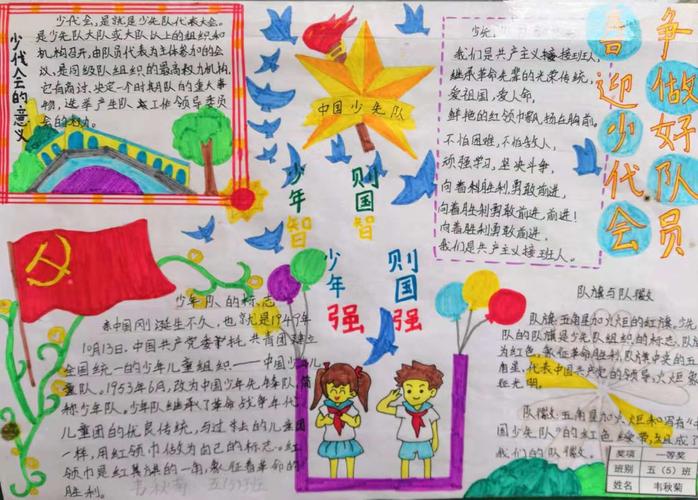 少代会的意义
少代会，是就是少先队代表大会。
是少先队大队或大队以上的组织和
机构召开，由队员代表为主体参加的会
议，是同级队组织的最高权力机构。
它商讨、决定一个时期队的重大事
物，选举产生队工作领导委员
会的权力。
中国少先队
少年智
则国智
少年强
则国强
我们是共产主义接班人，
继承革命先辈的光荣传统，
爱祖国，爱人命，
鲜艳的红领巾飘扬在胸前。
不怕困难，不怕敌人，
顽强学习，坚央斗争，
向着利胜利勇敢前进，
向着胜利勇敢前进，前进！
向着胜利勇敢前进，
我们是共产主义接班人。
争做好队员
喜迎少代会
少年队的标志
新中国刚诞生不久，也就是1949年
10月13日，中国共产党委托共青团建立
全国统一的少年儿童组织——中国少儿
童队。1953年6月，改为中国少年先锋队，简
称少年队。少年队继承了革命战争年代
儿童团的优良传统，与过去的儿童团
一样，用红领巾做为自己的标志。红
领巾是红其旗的一角，象征着革命的
胜利。
韦秋菊 五(5)班
队旗与队徽
队旗：五角星加火炬的红旗，少先
队的队旗是少先队组织的标志，队旗
为红色，象征革命胜利，队旗中央的五
角星，代表中国共产党的领导，火炬象
征光明。
队徽：五角星加火炬和写有“中
国少先队”的红色绶带，组成了
我们的队徽。
奖项 一等奖
班别 五（5）班
姓名 韦秋菊